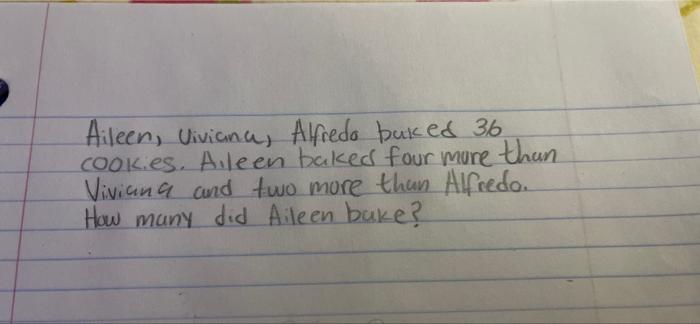 Aileen, Viviana, Alfredo baked 36
cookies. Aileen baked four more than
Viviana and two more than Alfredo.
How many did Aileen bake?